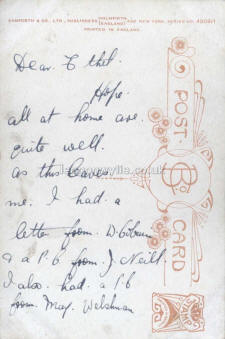 BAMFORTH & CO., LTD., PUBLISHERS, HOLMFIRTH (ENGLAND) AND NEW YORK. SERIES NO.
PRINTED IN ENGLAND
POST
CARD
STAMP
Dear Ethel.
Hope
all at home are
quite well.
as this leaves
me. I had a
letter from W.
& a P.C. from J. Neill.
I also had a P.C
from May Welshman